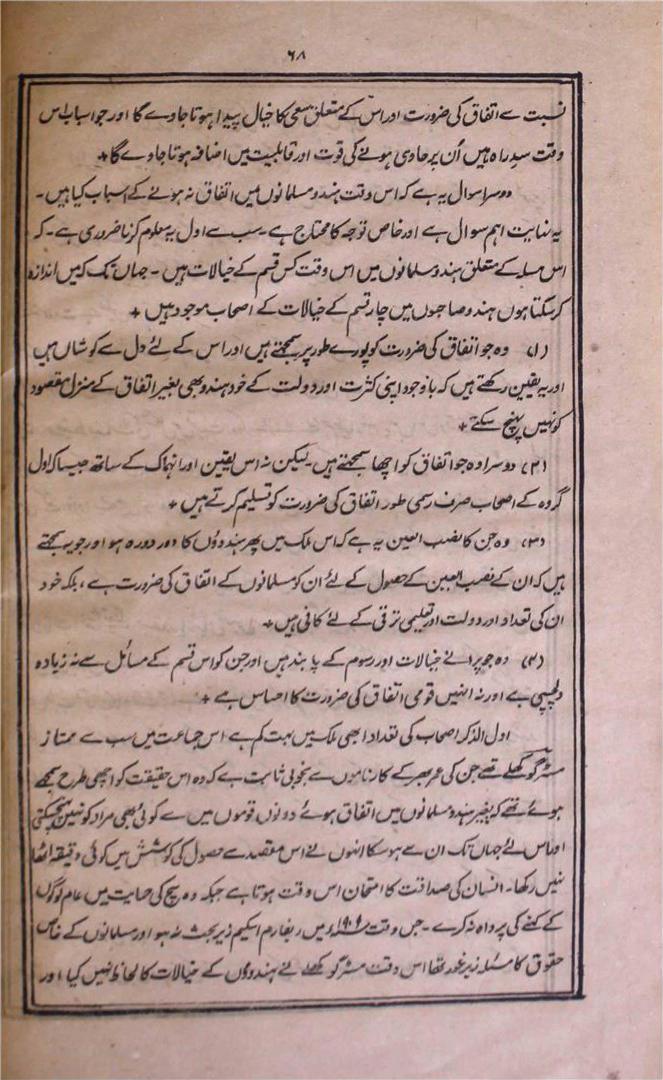 ۶۸
نسبت سے اتفاق کی ضرورت اور اس کے متعلق سعی کا خیال پیدا ہوتا جاوے گا اور جو اسباب اس
وقت سدِ راہ ہیں اُن پر حاوی ہونے کی قوت اور قابلیت میں اضافہ ہوتا جاوے گا +
دوسرا سوال یہ ہے کہ اس وقت ہندو مسلمانوں میں اتفاق نہ ہونے کے اسباب کیا ہیں۔
یہ نہایت اہم سوال ہے اور خاص توجہ کا محتاج ہے۔ سب سے اول یہ معلوم کرنا ضروری ہے۔ کہ
اس مسلہ کے متعلق ہندو مسلمانوں میں اس وقت کس قسم کے خیالات ہیں۔ جہاں تک کہ میں اندازہ
کر سکتا ہوں ہندو صاحبوں میں چار قسم کے خیالات کے اصحاب موجود ہیں +
(۱) وہ جو اتفاق کی ضرورت کو پورے طور پر سمجھتے ہیں اور اس کے لئے دل سے کوشاں ہیں
اور یہ یقین رکھتے ہیں کہ باوجود اپنی کثرت اور دولت کے خود ہندو بھی بغیر اتفاق کے منزل مقصود
کو نہیں پہنچ سکتے +
(۲) دوسرے وہ جو اتفاق کو اچھا سمجھتے ہیں۔ لیکن نہ اس یقین اور انہماک کے ساتھ جیسا کہ اول
گروہ کے اصحاب صرف رسمی طور اتفاق کی ضرورت کو تسلیم کرتے ہیں +
(۳) وہ جن کا نصب العین یہ ہے کہ اس ملک میں پھر ہندوؤں کا دور دورہ ہو اور جو یہ سمجھتے
ہیں کہ ان کے نصب العین کے حصول کے لئے ان کو مسلمانوں کے اتفاق کی ضرورت ہے ، بلکہ خود
ان کی تعداد اور دولت اور تعلیمی ترقی کے لئے کافی ہیں +
(۴) وہ جو پرانے خیالات اور رسوم کے پابند ہیں اور جن کو اس قسم کے مسائل سے نہ زیادہ
دلچسپی ہے اور نہ انہیں قومی اتفاق کی ضرورت کا احساس ہے +
اول الذکر اصحاب کی تعداد ابھی ملک میں بہت کم ہے اس جماعت میں سب سے ممتاز
مسٹر گوکھلے تھے جن کی عمر بھر کے کارناموں سے بخوبی ثابت ہے کہ وہ اس حقیقت کو اچھی طرح سمجھے
ہوئے تھے کہ بغیر ہندو مسلمانوں میں اتفاق ہوئے دونوں قوموں میں سے کوئی بھی مراد کو نہیں پہنچ سکتی
اور اس لئے جہاں تک ان سے ہو سکا انہوں نے اس مقصد سے حصول کی کوشش میں کوئی دقیقہ اٹھا
نہیں رکھا۔ انسان کی صداقت کا امتحان اس وقت ہوتا ہے جبکہ وہ سچ کی حمایت میں عام لوگوں
کے کہنے کی پرواہ نہ کرے۔ جس وقت میں ریفارم اسکیم زیر بحث ہو اور مسلمانوں کے خاص
حقوق کا مسئلہ زیر غور تھا اس وقت مسٹر گوکھلے نے ہندوؤں کے خیالات کا لحاظ نہیں کیا اور